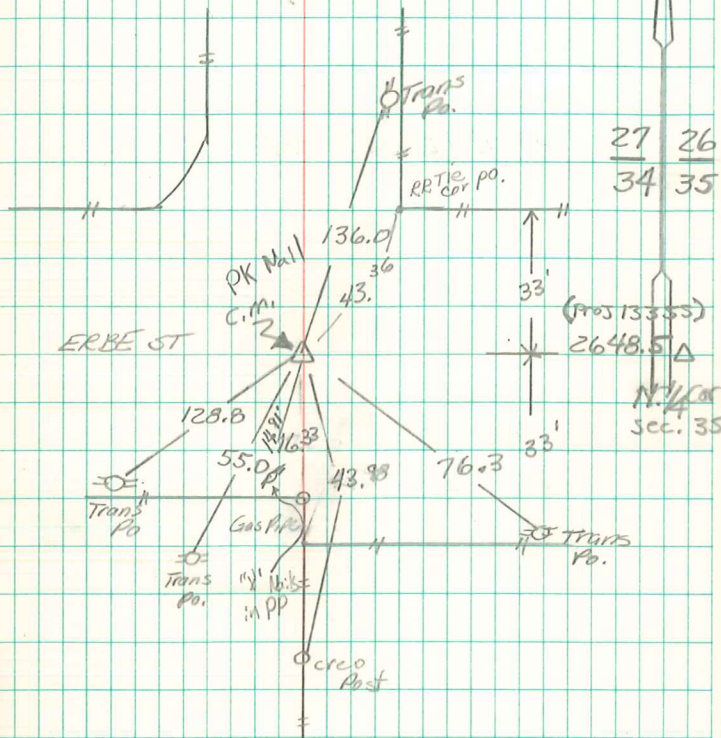 Trans
Po.
27 26
34 35
RR Tie
cor po.
136.0
PK Nail
43.36
33'
C.M.
(Proj 13355)
ERBE ST
2648.5
N. 1/4 Cor
Sec. 35
128.8
16.33
33'
55.0
43.98
76.3
Trans
Po
Gas Pipe
Trans
Po.
Trans
Po.
"X" Nails
in PP
creo
Post